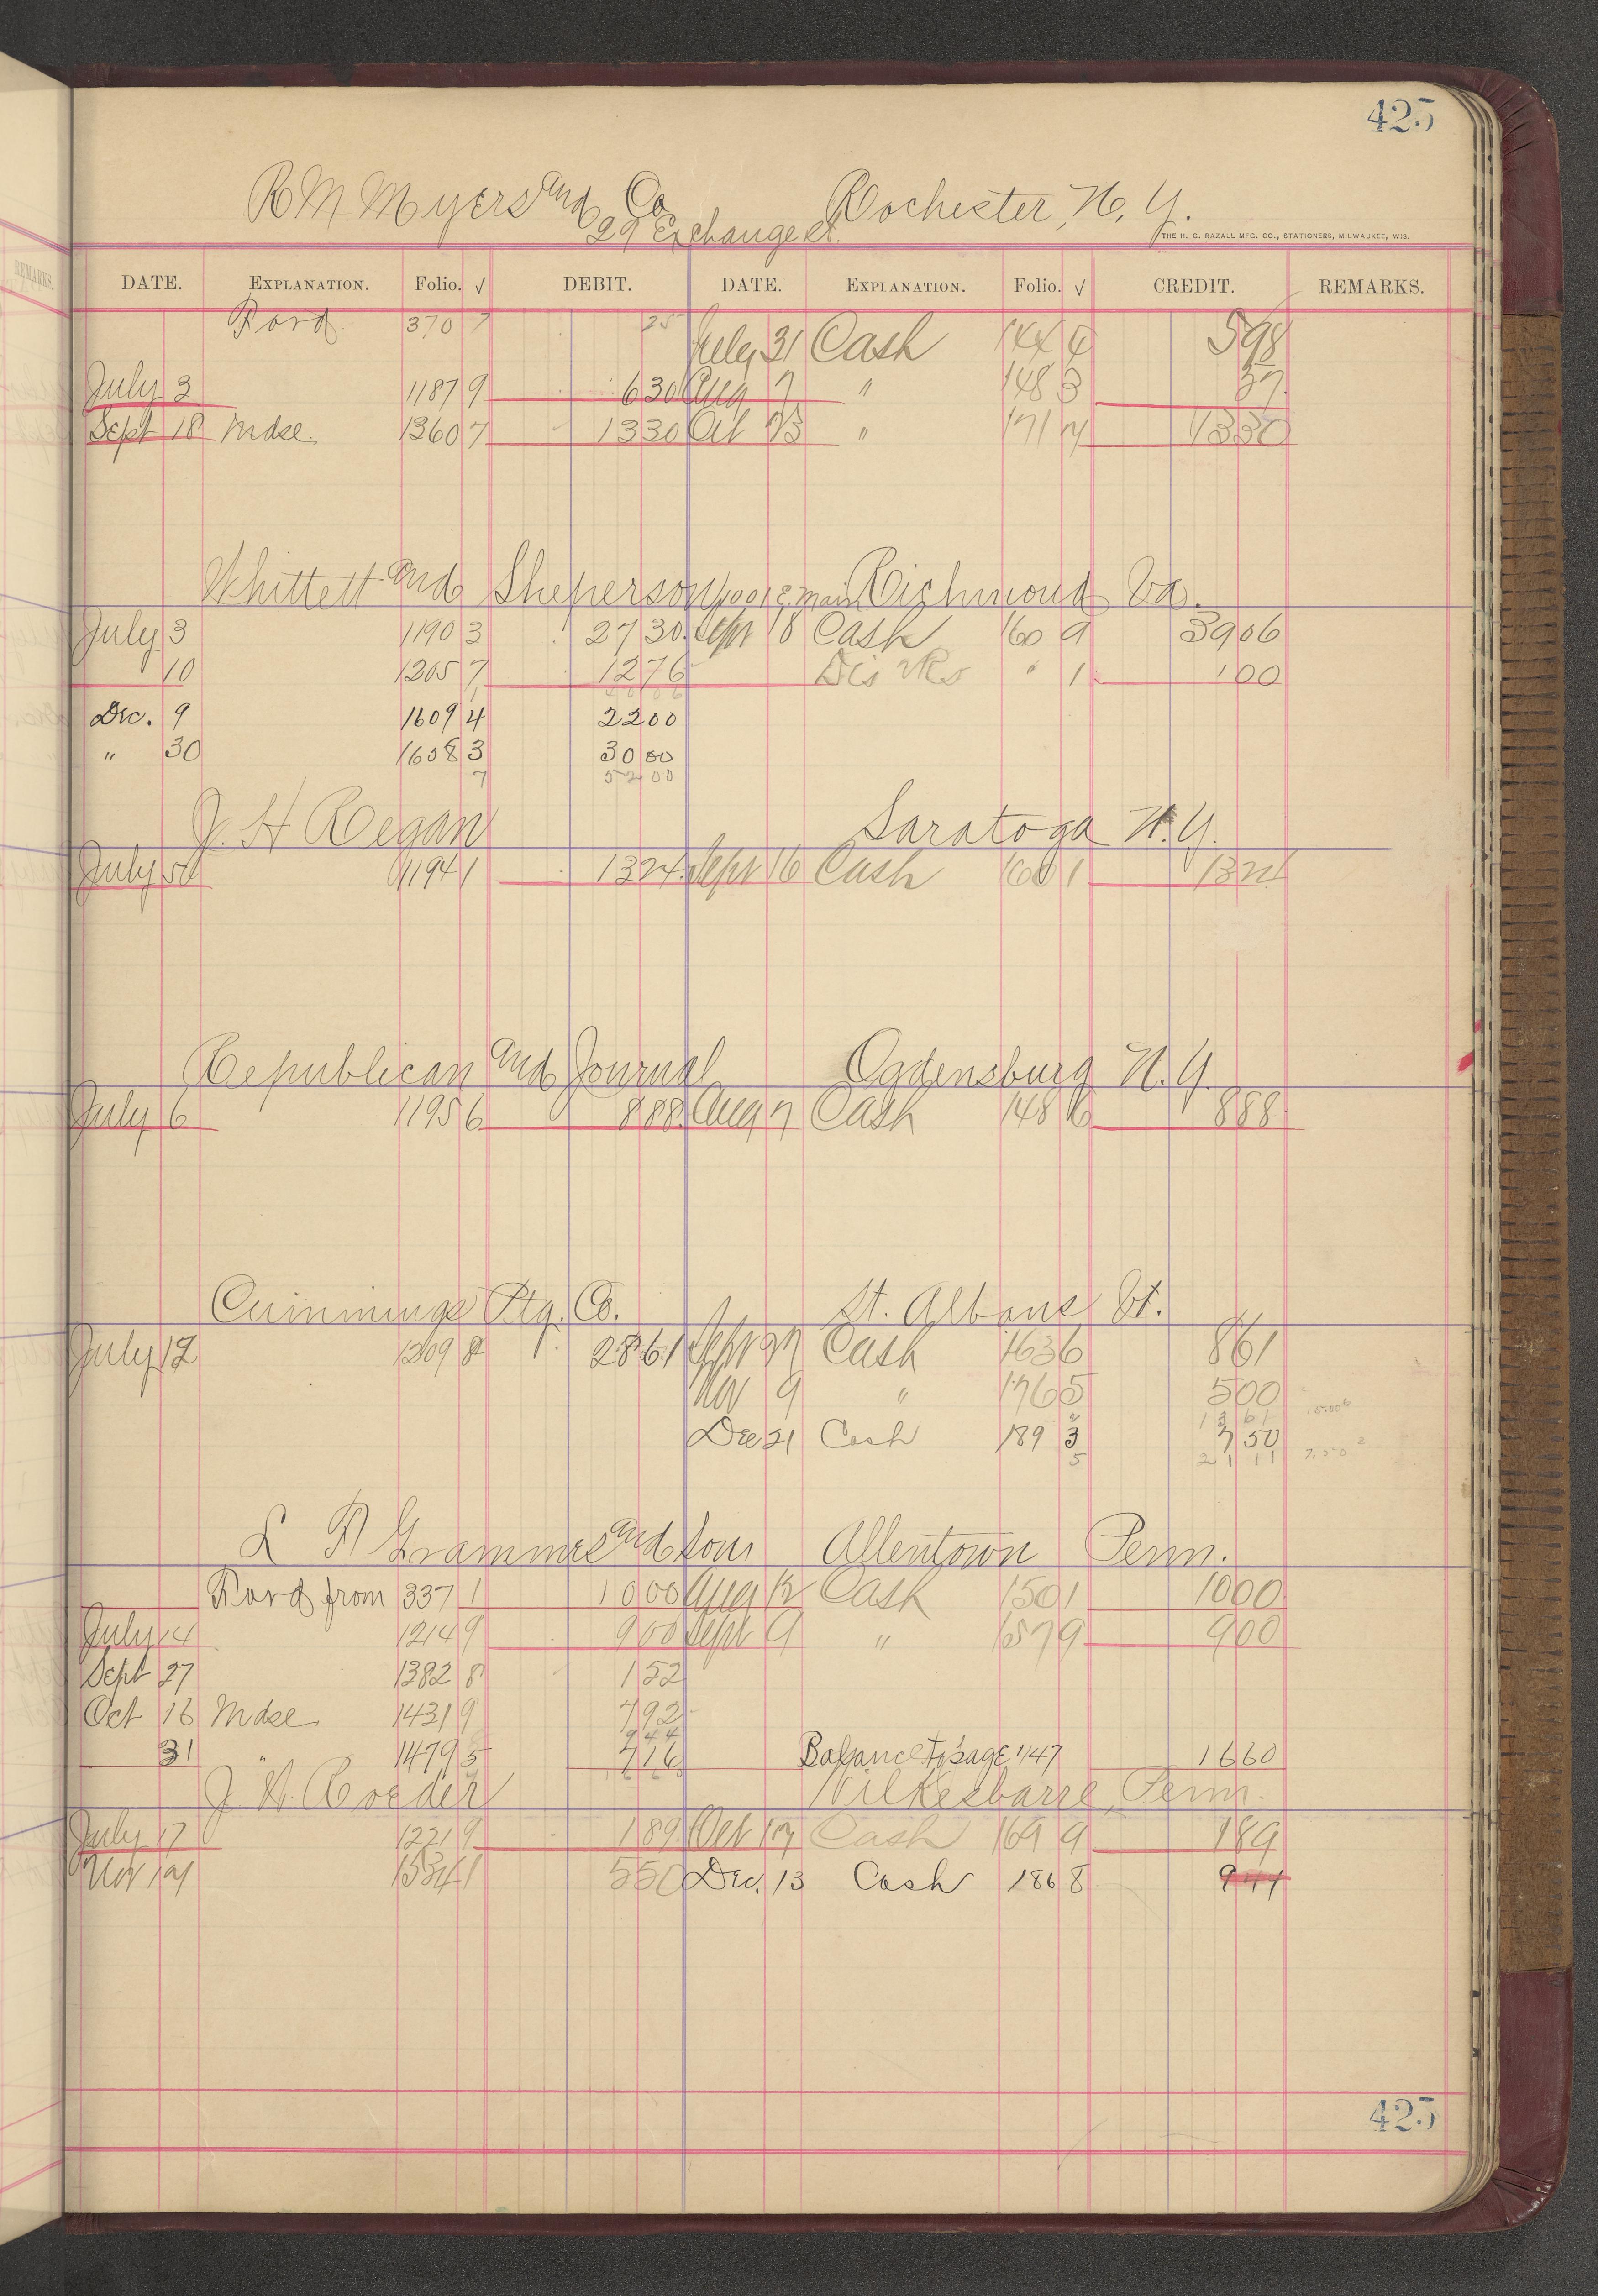 425
R M. Myers and Co Rochester, N. Y.
29 Exchange St.
THE H. G. RAZALL MFG. CO., STATIONERS, MILWAUKEE, WIS.
DATE. EXPLANATION. Folio. √ DEBIT. DATE. EXPLANATION. Folio. √ CREDIT. REMARKS.
Ford 370 7 25 July 31 Cash 144 4 598
July 3 1187 9 630 Aug 7 " 148 3 37
Sept 18 Mdse. 1360 7 1330 Oct 23 " 171 7 1330
Whittett and Sheperson 1001 E. Main Richmond Va.
July 3 1190 3 27 30 Sept 18 Cash 160 9 3906
10 1205 7 1276 Dis " 1 100
Dec. 9 1609 4 2200
" 30 1658 3 3000
7 5200
J. H Regan Saratoga N.Y.
July 5 1194 1 1324 Sept 16 Cash 160 1 1324
Republican and Journal Ogdensburg N.Y.
July 6 1195 6 888 Aug 7 Cash 148 6 888
Cummings Ptg. Co. St. Albans Vt.
July 12 1209 8 2861 Sept 27 Cash 163 6 861
Nov 9 " 176 5 500
1361
Dec 21 Cash 189 3 7 50
5 21 11
L F Grammes and Sons Allentown Penn.
Ford from 337 1 1000 Aug 12 Cash 150 1 1000
July 14 1214 9 900 Sept 9 " 157 9 900
Sept 27 1382 8 152
Oct 16 Mdse. 1431 9 792
944
31 " 1479 5 716 Balance to page 447 1660
J. H. Roeder Wilkesbarre, Penn.
July 17 1221 9 189 Oct 17 Cash 169 9 189
Nov 14 1534 1 550 Dec. 13 Cash 186 8 944
425